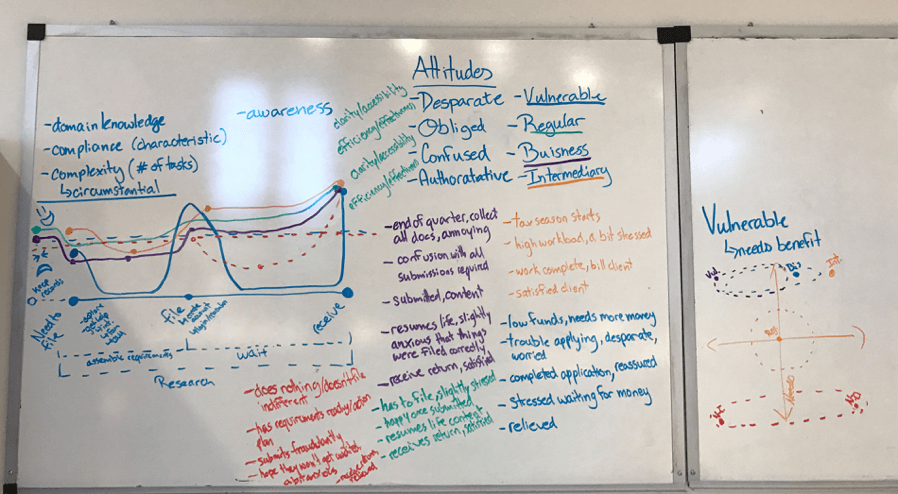 Attitudes
- Desparate
- Obliged
- Confused
- Authoratative
- Vulnerable
- Regular
- Buisness
- Intermediary
clarity/accessibility
efficiency/effectiveness
clarity/accessibility
efficiency/effectiveness
- awareness
- domain knowledge
- compliance (characteristic)
- complexity (# of tasks)
↳ circumstantial
keep
records
Need to
file
file
receive
assemble requirements
wait
Research
- end of quarter, collect
all docs, annoying
- confusion with all
submissions required
- submitted, content
- resumes life, slightly
anxious that things
were filed correctly
- receive return, satisfied
- tax season starts
- high workload, a bit stressed
- work complete, bill client
- satisfied client
- low funds, needs more money
- trouble applying, desparate,
worried
- completed application, reassured
- stressed waiting for money
- relieved
- does nothing/doesn't file
indifferent
- has requirements ready/action
plan
- submits fraudulantly
- hope they won't get audited,
- has to file, slightly stressed
- happy once submitted
- resumes life content
- receives return, satisfied
Vulnerable
↳ needs benefit
Vul.
Bis
Int.
Reg